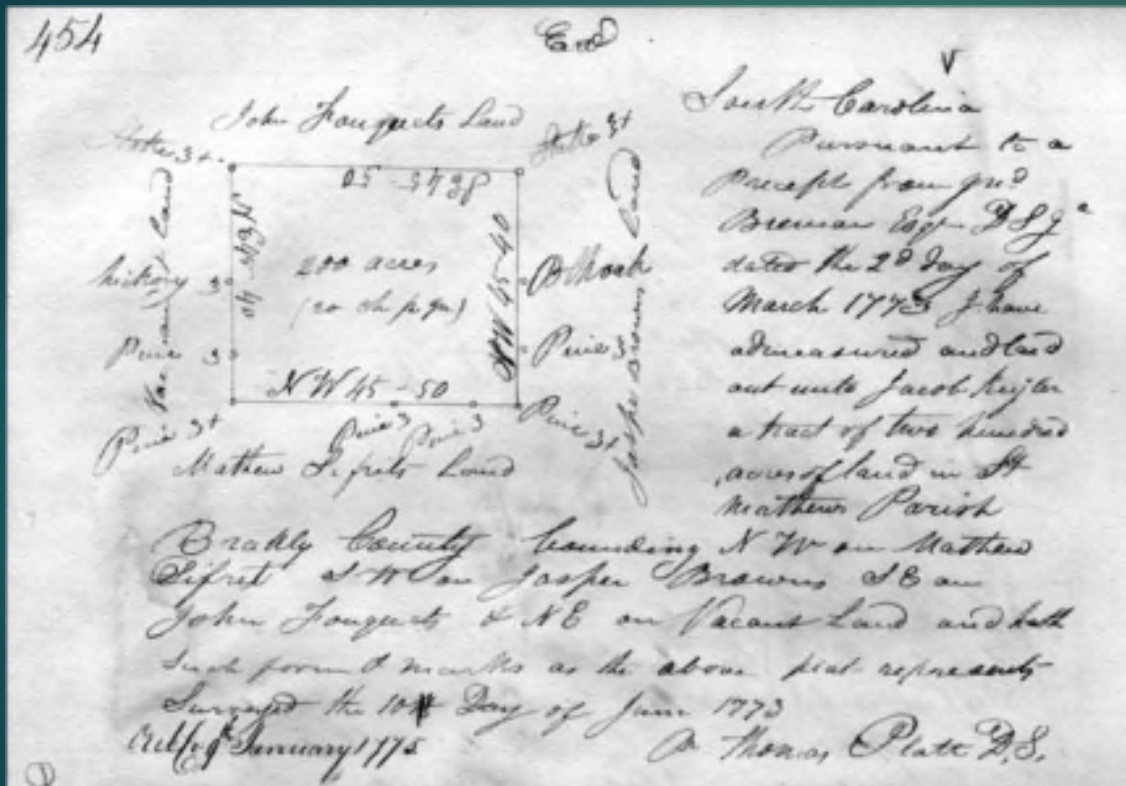 454
End
John Fouquets Land
Stake 3+
Stake 3+
SE 45 - 50
Vacant Land
hickory 3
Pine 3
Pine 3+
NE 45 - 40
200 acres
(20 ch p
SW 45-40
NW 45 - 50
Pine 3
Pine 3
Pine 3
Pine 3+
Jasper Browns Land
Mathew Sifrets Land
South Carolina
Pursuant to a
Precept from
Bremar Esqr D S G
dated the 2d day of
March 1773 I have
admeasured and laid
out unto Jacob
a tract of two hundred
acres of land in St
Mathews Parish
Brakly County bounding N W on Mathew
Sifret S W on Jasper Browns S E on
John Fouquets & N E on Vacant Land and hath
Such form & marks as the above plat represents
Surveyed the 10 Day of June 1773
January 1775
Thomas Platt D.S.